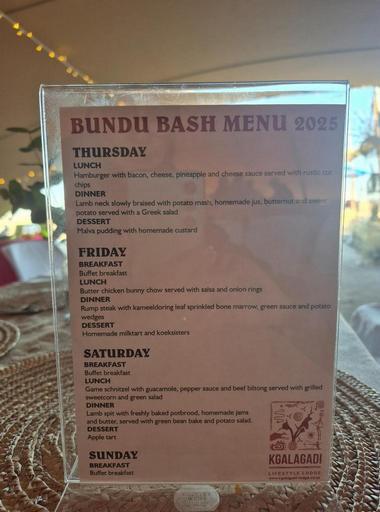 BUNDU BASH MENU 2025
THURSDAY
LUNCH
Hamburger with bacon, cheese, pineapple and cheese sauce served with rustic cut
chips
DINNER
Lamb neck slowly braised with potato mash, homemade jus, butternut and sweet
potato served with a Greek salad
DESSERT
Malva pudding with homemade custard
FRIDAY
BREAKFAST
Buffet breakfast
LUNCH
Butter chicken bunny chow served with salsa and onion rings
DINNER
Rump steak with kameeldoring leaf sprinkled bone marrow, green sauce and potato
wedges
DESSERT
Homemade milktart and koeksisters
SATURDAY
BREAKFAST
Buffet breakfast
LUNCH
Game schnitzel with guacamole, pepper sauce and beef biltong served with grilled
sweetcorn and green salad
DINNER
Lamb spit with freshly baked potbrood, homemade jams
and butter, served with green bean bake and potato salad.
DESSERT
Apple tart
SUNDAY
BREAKFAST
Buffet breakfast
KGALAGADI
LIFESTYLE LODGE